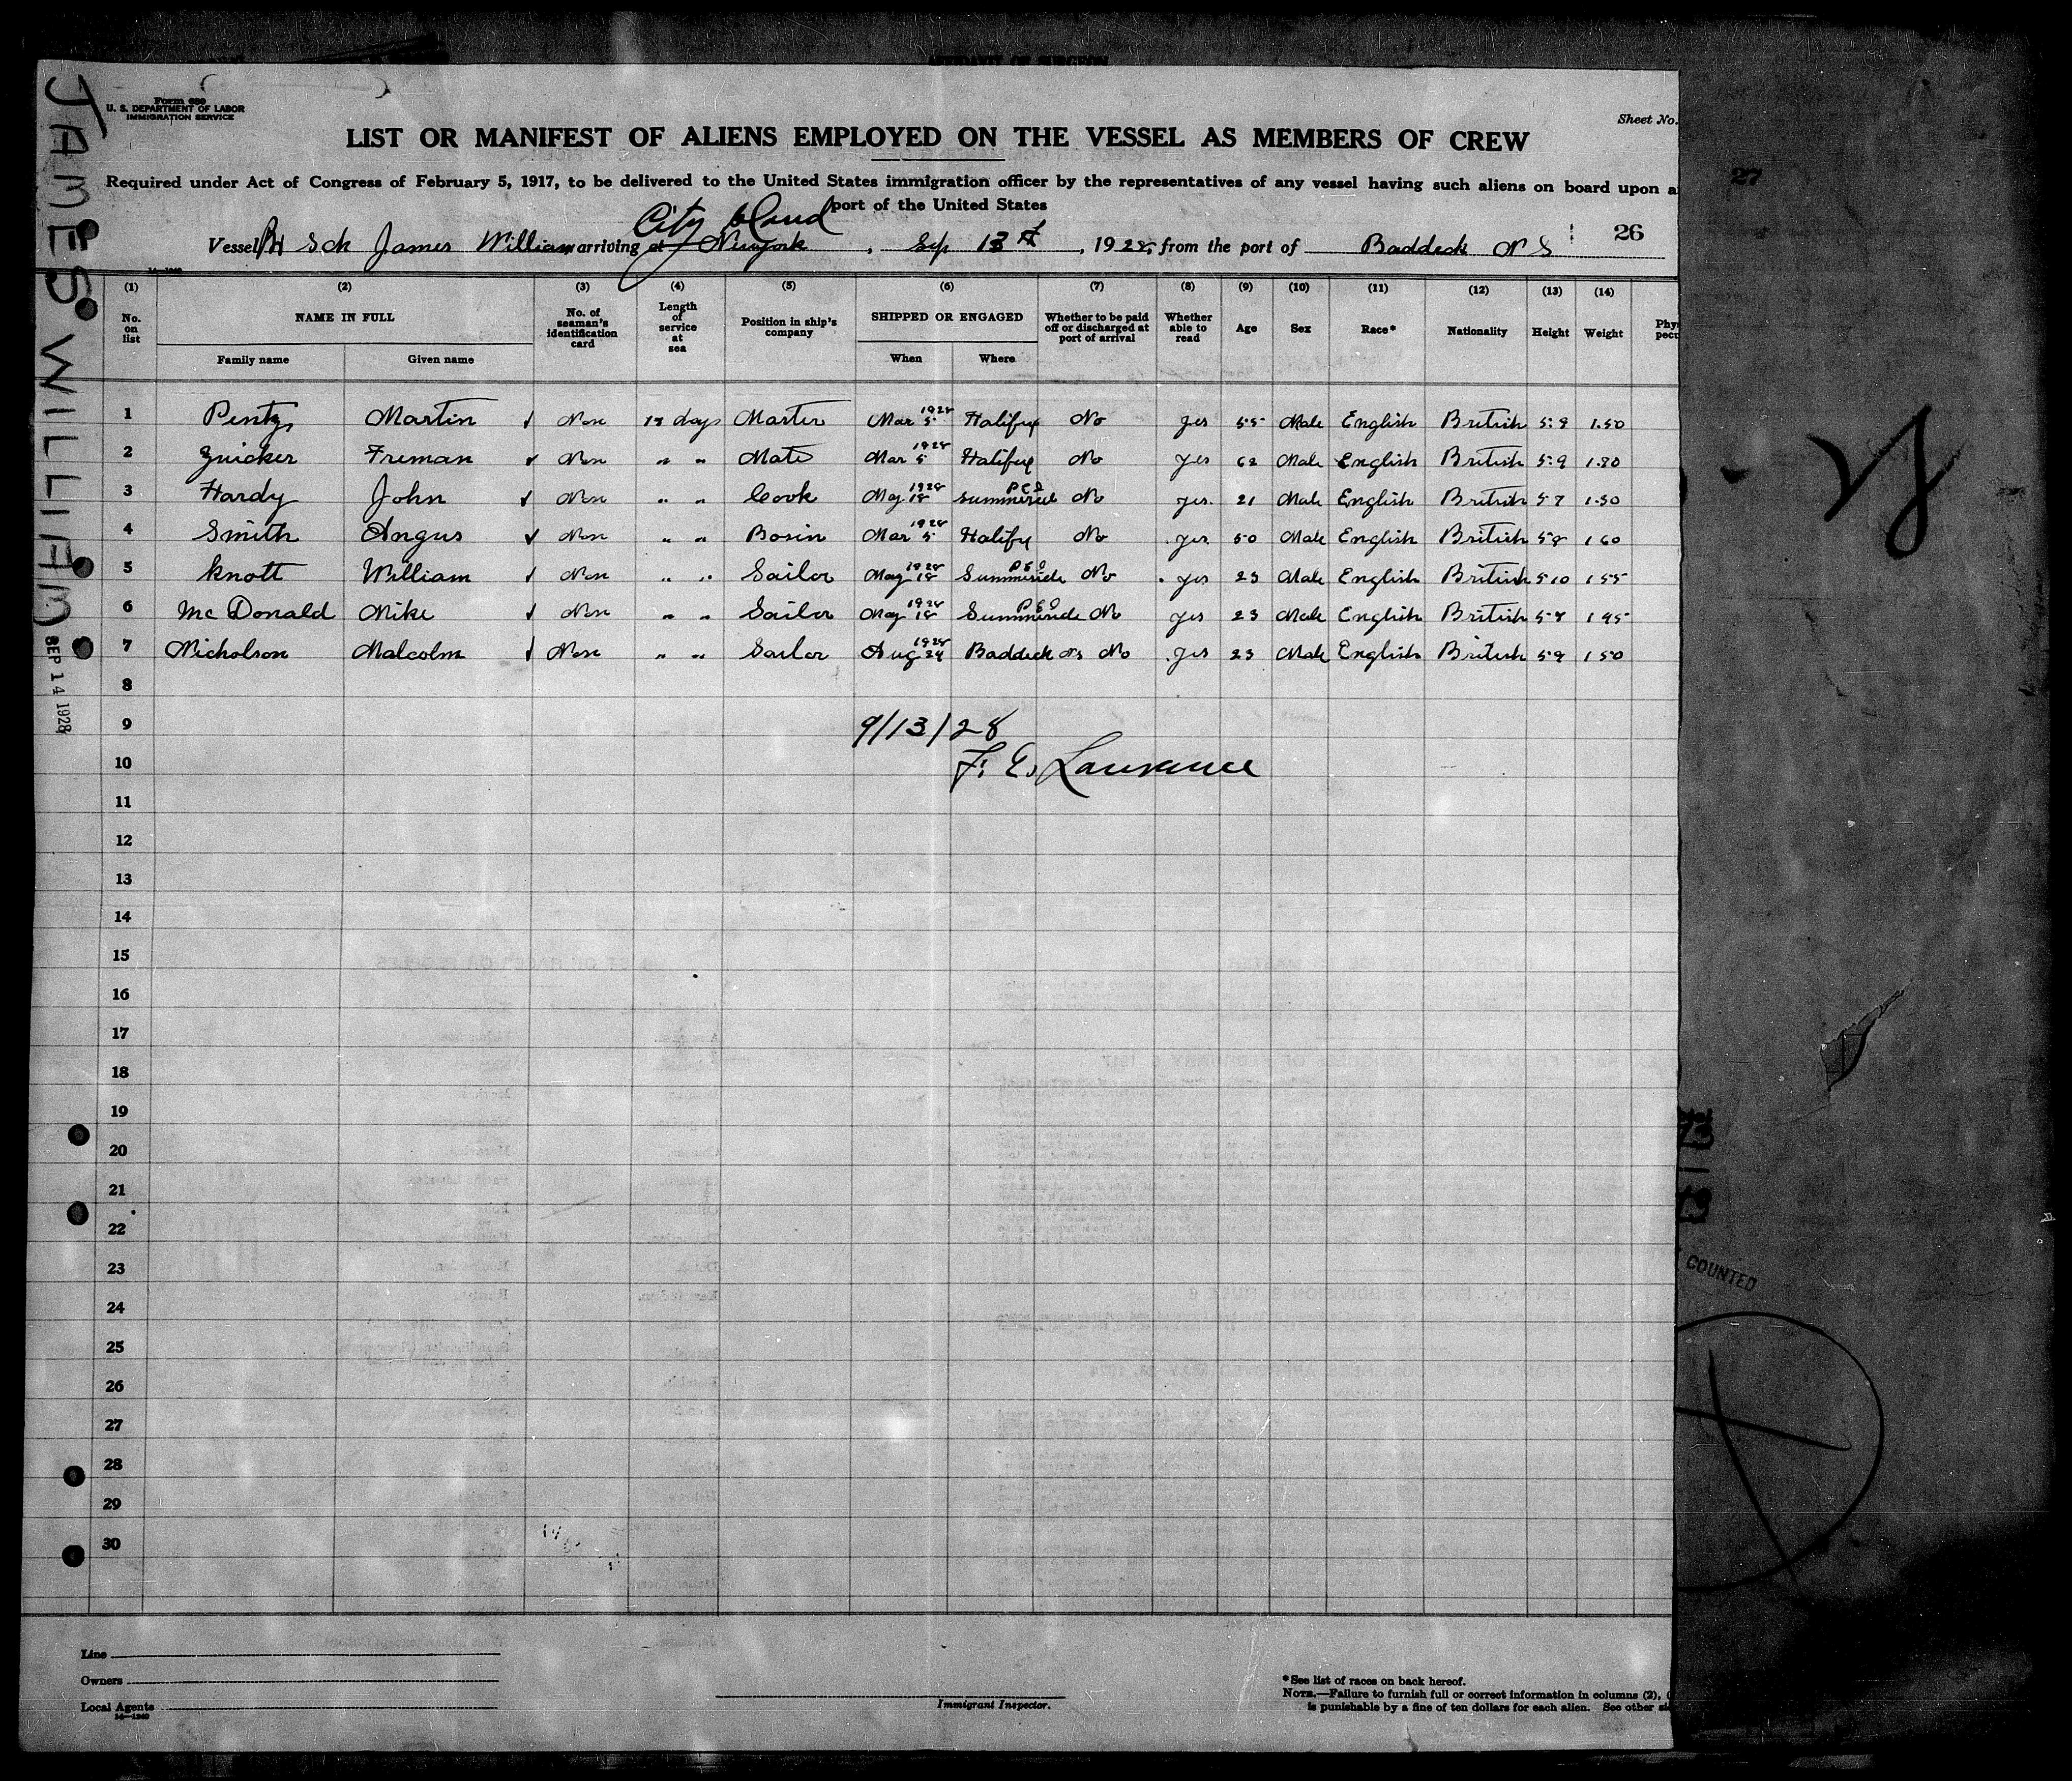 AFFIDAVIT OF SURGEON
Form 689
U. S. DEPARTMENT OF LABOR
IMMIGRATION SERVICE
Sheet No.
LIST OR MANIFEST OF ALIENS EMPLOYED ON THE VESSEL AS MEMBERS OF CREW
Required under Act of Congress of February 5, 1917, to be delivered to the United States immigration officer by the representatives of any vessel having such aliens on board upon a
port of the United States
City Island
Vessel Br Sch James William arriving at New York, Sep 13, 1928, from the port of Baddeck N S
26
27
JAMES WILLIAM
SEP 14 1928
(1) (2) (3) (4) (5) (6) (7) (8) (9) (10) (11) (12) (13) (14)
No. on list NAME IN FULL No. of seaman's identification card Length of service at sea Position in ship's company SHIPPED OR ENGAGED Whether to be paid off or discharged at port of arrival Whether able to read Age Sex Race* Nationality Height Weight
Family name Given name When Where
1 Pentz Martin ✓ None days Master Mar 5 1928 Halifax No yes 55 Male English British 5:9 1.50
2 Zuicker Freman ✓ None " " Mate Mar 5 1928 Halifax No yes 62 Male English British 5:9 1.80
3 Hardy John ✓ None " " Cook May 18 1928 Summerside P E I No yes. 21 Male English British 5 7 1.50
4 Smith Angus ✓ None " " Bosin Mar 5 1928 Halifax No yes 50 Male English British 5 8 1 60
5 Knott William ✓ None " " Sailor May 18 1928 Summerside P E I No yes 23 Male English British 5 10 1 55
6 McDonald Mike ✓ None " " Sailor May 18 1928 Summerside P E I No yes 23 Male English British 5 1
7 Nicholson Malcolm ✓ None " " Sailor Aug 24 1928 Baddeck NS No yes 23 Male English British 5 9 1 50
8
9
9/13/28
10
F. E. Lawrance
11
12
13
14
15
16
17
18
19
20
21
22
23
24
25
26
27
28
29
30
COUNTED
Line
Owners
Local Agents
Immigrant Inspector.
*See list of races on back hereof.
NOTE.—Failure to furnish full or correct information in columns (2), (
is punishable by a fine of ten dollars for each alien. See other si